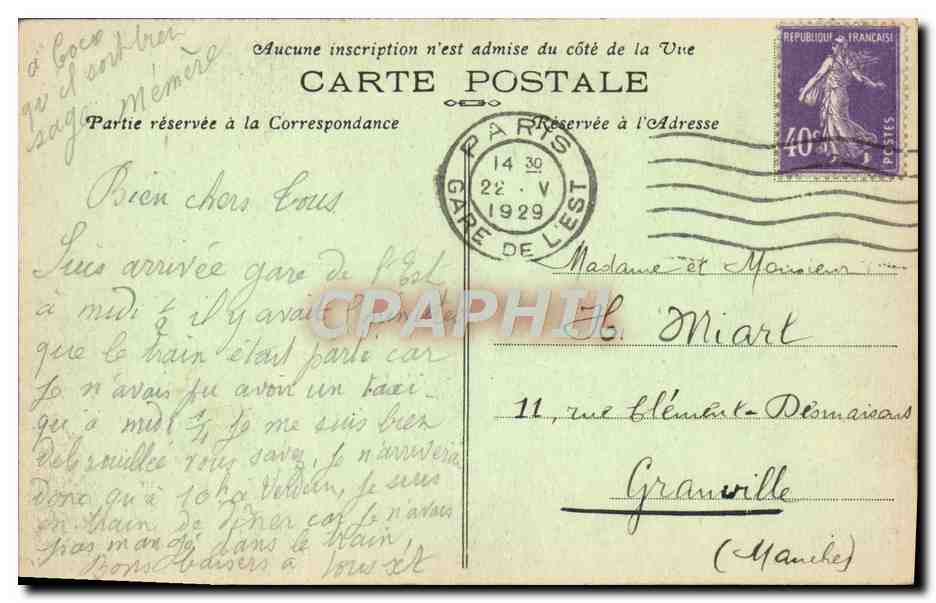 Aucune inscription n'est admise du côté de la Vue
CARTE POSTALE
Partie réservée à la Correspondance
Réservée à l'Adresse
à Coco
qu'il soit bien
sage Mémère
Bien chers tous
Suis arrivée gare de l'Est
à midi 1/2 il y avait
que le train était parti car
je n'avais pu avoir un taxi
qu'à midi 1/4 je me suis bien
débrouillée vous savez, je n'arriverai
donc qu'à 10h à Verdun, je suis
en train de dîner car je n'avais
pas mangé dans le train,
Bons baisers à tous
REPUBLIQUE FRANÇAISE
40c
POSTES
PARIS
14 30
22 · V
1929
GARE DE L'EST
Madame et Monsieur
H. Miart
11, rue Clément-Desmaisons
Granville
(Manche)
CPAPHIL